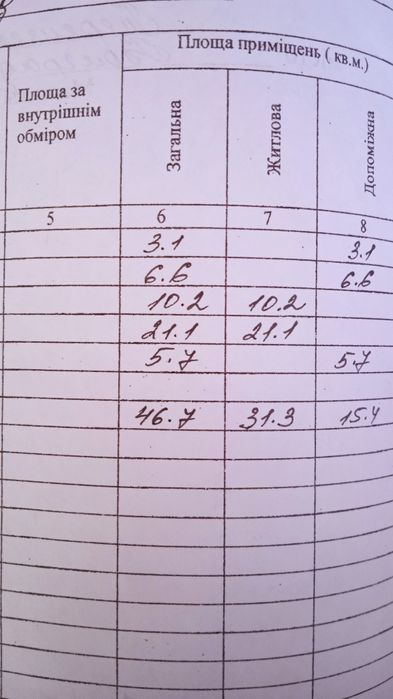 Площа приміщень ( кв.м.)
Площа за
внутрішнім
обміром
Загальна
Житлова
Допоміжна
5 6 7 8
3.1 3.1
6.6 6.6
10.2 10.2
21.1 21.1
5.7 5.7
46.7 31.3 15.4